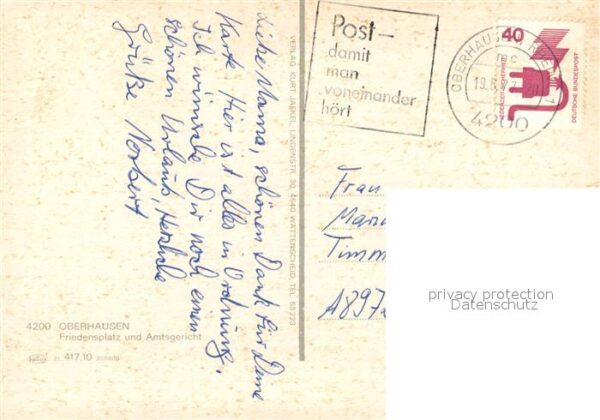 Liebe Mama, schönen Dank für Deine
Karte. Hier ist alles in Ordnung.
Ich wünsche Dir noch einen
schönen Urlaub, Herzliche
Grüße Norbert
VERLAG KURT JAEKEL, LINDENSTR. 30, 4640 WATTENSCHEID, TEL. 58223
Post-
damit
man
voneinander
hört
OBERHAUSEN
19.
4200
40
DEUTSCHE BUNDESPOST
Frau
Timm
A897
privacy protection
Datenschutz
4200 OBERHAUSEN
Friedensplatz und Amtsgericht
417.10